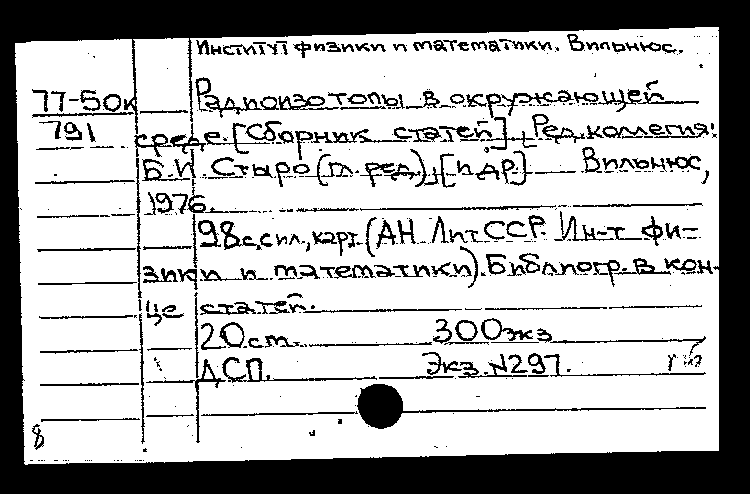 Институт физики и математики. Вильнюс.
77-50к Радиоизотопы в окружающей
791 среде. [Сборник статей]. [Ред. коллегия:
Б.И. Стыро (гл. ред.)] [и др.] Вильнюс,
1976.
98 с. с ил., карт. (АН Лит ССР. Ин-т фи-
зики и математики). Библиогр. в кон-
це статей.
20 см. 300 экз
ДСП. Экз. N297.
8